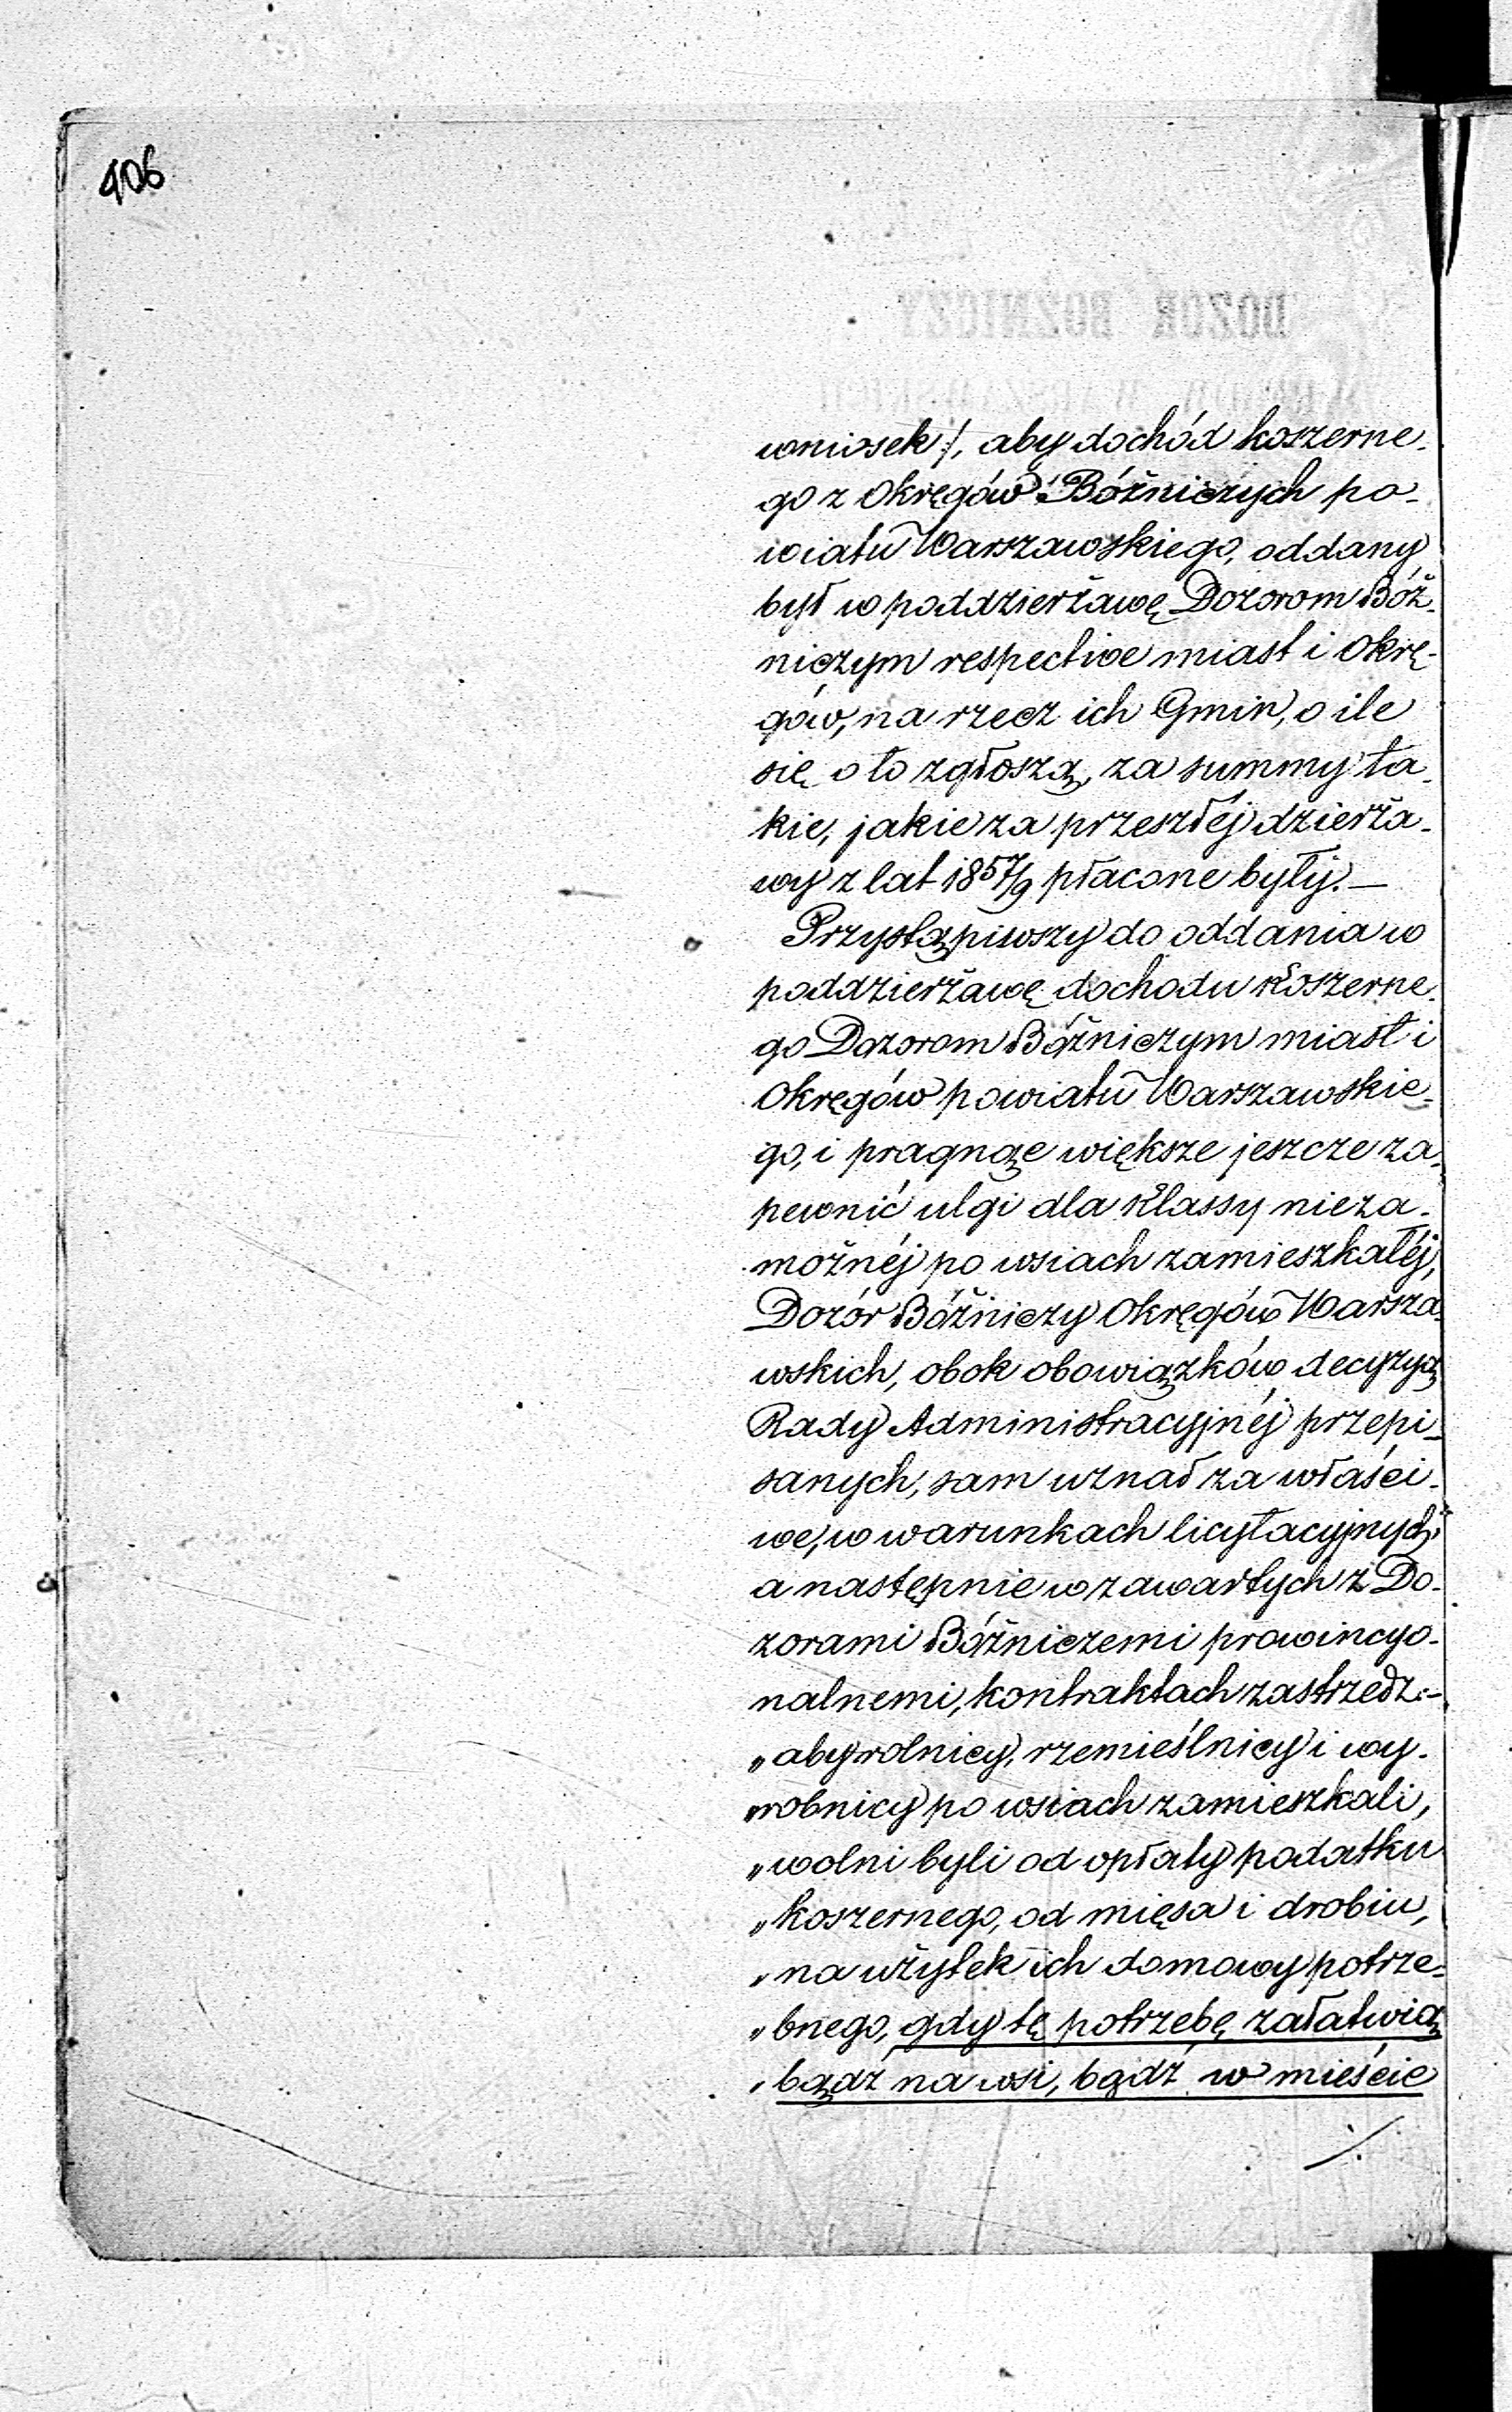 406
wniosek/, aby dochód koszerne-
go z Okręgów Bóżniczych po-
wiatu Warszawskiego, oddany
był w poddzierżawę Dozorom Bóż-
niczym respective miast i Okrę-
gów, na rzecz ich Gmin, o ile
się o to zgłoszą, za summy ta-
kie, jakie za przeszłéj dzierża-
wy z lat 1857/9 płacone były.—
Przystąpiwszy do oddania w
poddzierżawę dochodu Koszerne-
go Dozorom Bóżniczym miast i
Okręgów powiatu Warszawskie-
go, i pragnąc większe jeszcze za-
pewnić ulgi dla Klassy nieza-
możnéj po wsiach zamieszkałéj,
Dozór Bóżniczy Okręgów Warsza-
wskich, obok obowiązków decyzyą
Rady Administracyjnéj przepi-
sanych, sam uznał za właści-
we, w warunkach licytacyjnych
a następnie w zawartych z Do-
zorami Bóżniczemi prowincyo-
nalnemi, kontraktach zastrzedz:-
„aby rolnicy, rzemieślnicy i wy-
„robnicy po wsiach zamieszkali,
„wolni byli od opłaty podatku
„koszernego, od mięsa i drobiu,
„na użytek ich domowy potrze-
„bnego, gdy tę potrzebę załatwią
„bądź na wsi, bądź w mieście
./.
DOZÓR BÓŻNICZY